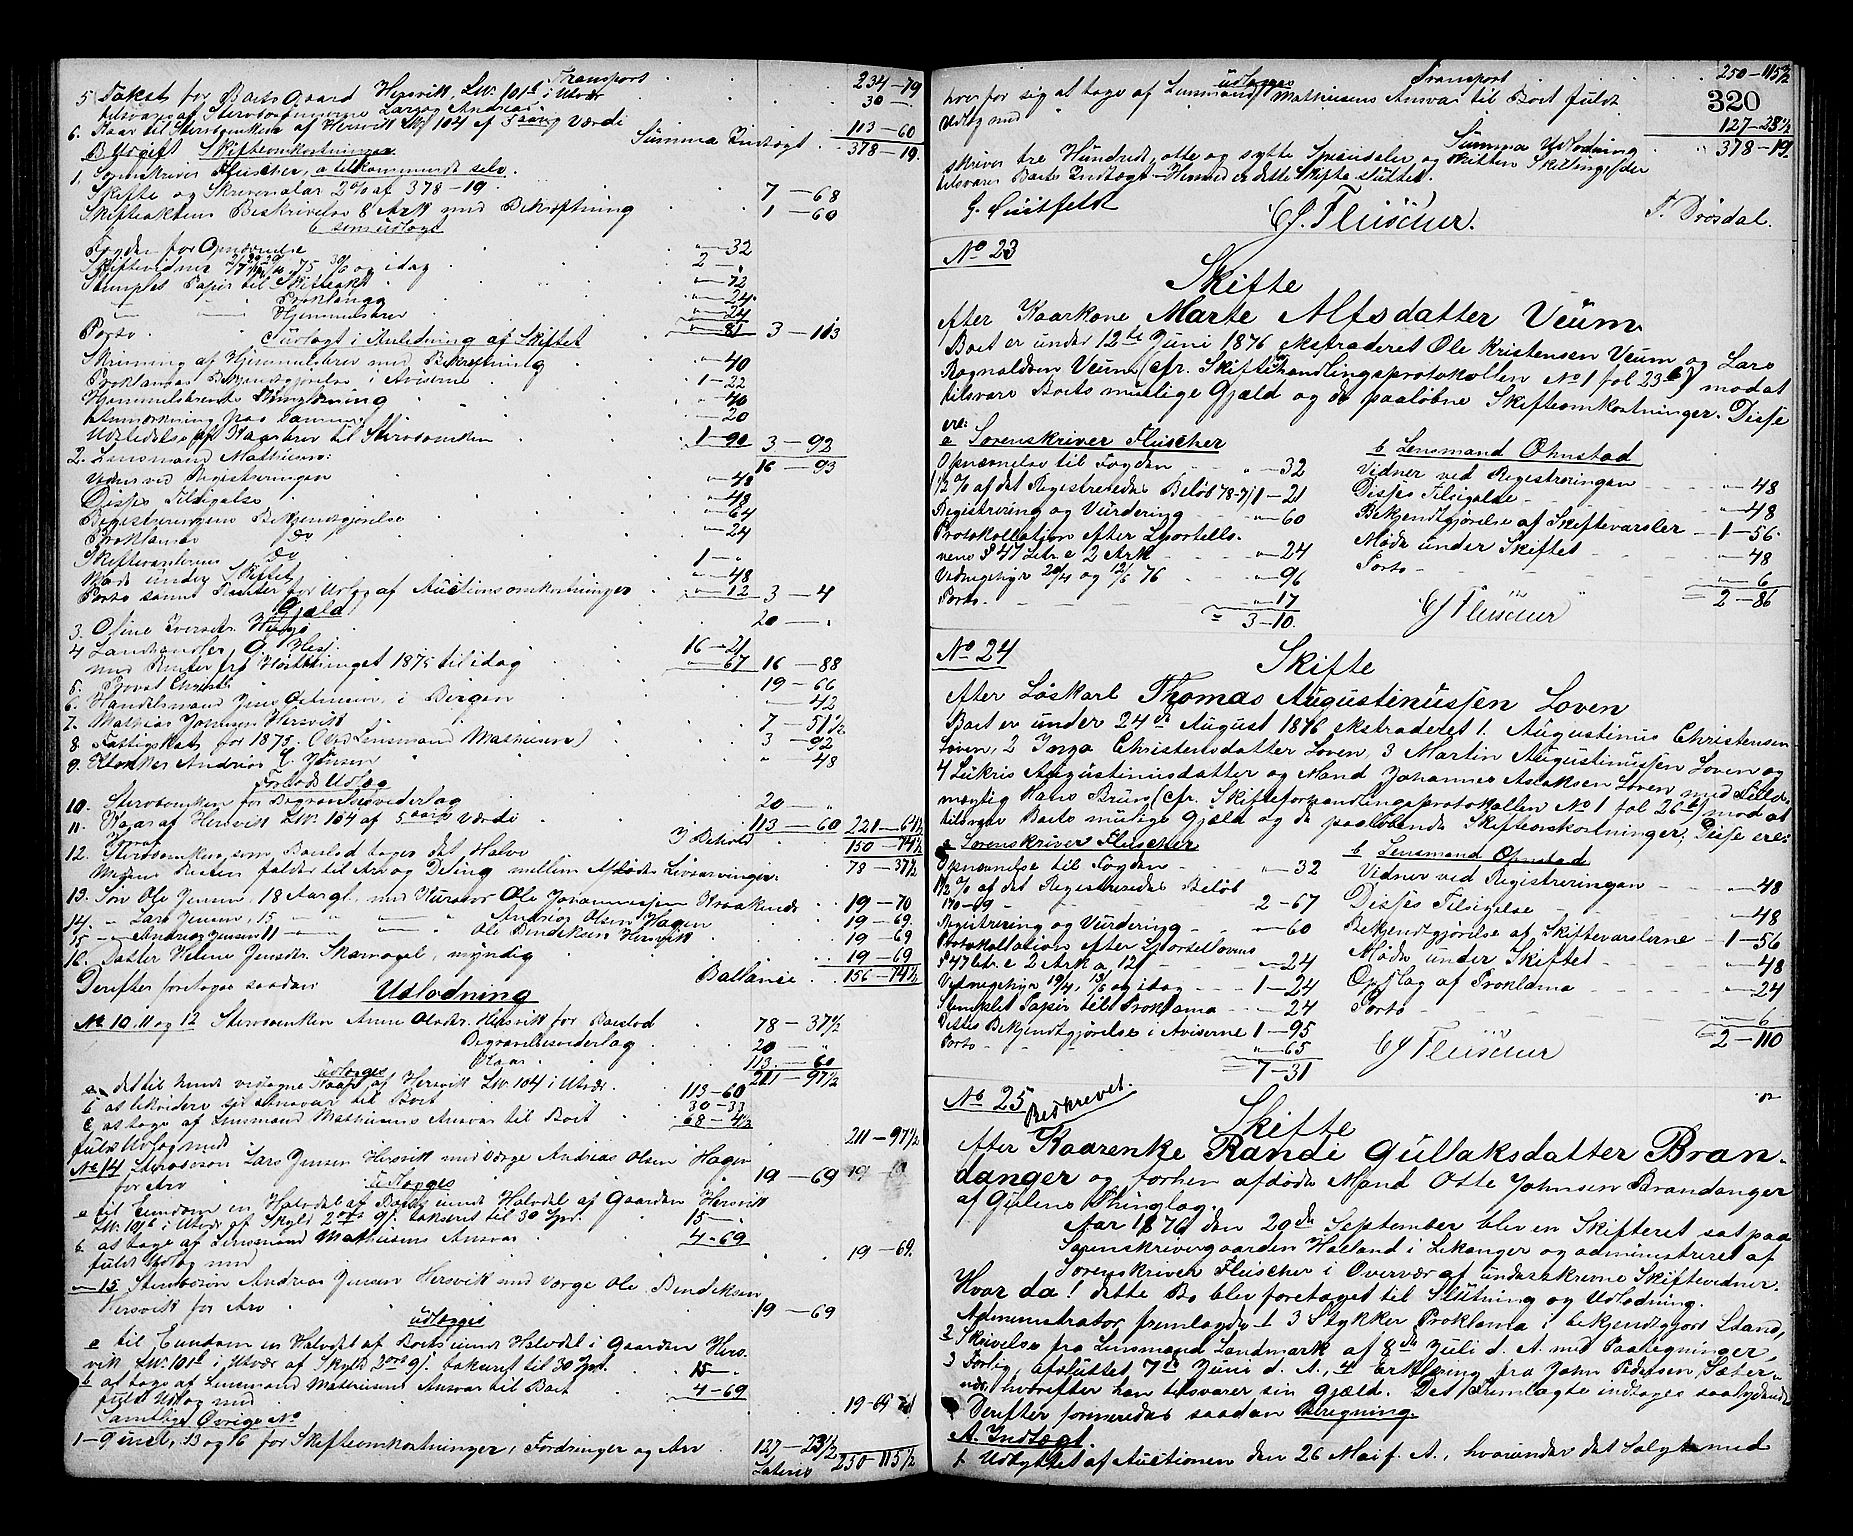 Transport 234-79
5 Takst for Boets Gaard Hersvik, LN: 101d i Utvær 30 —
tilsvares af Stervbosønnerne Lars og Andreas
6. Kaar til Stervboenken af Hersvik LN 104 af 5aarig Værdi 113-60
Summa Indtægt 378-19.
B. Udgift Skifteomkostninger
1. Sorenskriver Fleischer, a tilkommende selv.
Skifte og Skriversalær 2% af 378-19. 7-68
Skifteaktens Beskrivelse 8 Ark med Bekræftning 1-60
b som udlagt
Fogden for Opnævnelse "-32
Skiftevidner og idag 2-"
Stemplet Papir til Skifteakt "-72
— Proklama "-24
— Hjemmelsbrev "-24
Porto "-81 3-113
Indlagt i Anledning af Skiftet
Skrivning af Hjemmelsbrev med Bekræftning "-40
Proklamas Bekjendtgjørelse i Aviserne 1-22
Hjemmelsbrevets Thinglæsning "-40
Anmærkning paa samme "-20
Udstedelse af Kaarbrev til Stervboenken 1-90 3-92
16-93
2. Lensmand Mathiesen:
Vidner ved Registreringen "-48
Disses Tilsigelse "-48
Registreringens Bekjendtgjørelse "-64
Proklamas do "-24
Skiftevarslernes do 1-"
Møde under Skiftet "-48
Porto samt Renter for Udlæg af Auctionsomkostninger "-12 3-4
Gjæld
3. Oline Iversdtr. Hersvik 20-"
4 Landhandler O. Hesj. 16-21
med Renter fra Høstthinget 1875 til idag "-67 16-88
5. Provst Christie 19-66
6. Handelsmand Jens Oelmann i Bergen "-42
7. Mathias Johnsen Hersvik 7-51½
8. Fattigskat for 1875. (ved Lensmand Mathiesen) 3-92
9. Klokker Andreas E. Jensen "-48
Forlods Udlæg
10. Stervboenken for Begravelsesvederlag 20-"
11. Kaar af Hersvik LN: 104 af 5aarig Værdi 113-60 221-64½
I Behold 150-74½
12. Stervboenken, som Boeslod tager det Halve 78-37½
Medens Resten falder til Arv og Deling mellem Afdødes Livsarvinger:
13. Søn Ole Jensen, 18 Aar gl. med Kurator Ole Johannessen Kraakenes 19-70
14. — Lars Jensen, 15 — Andreas Olsen Hagen 19-69.
15 — Andreas Jensen 11 — Ole Bendiksen Hersvik 19-69
16. Datter Helene Jensdtr. Skarnagel, myndig 19-69
Ballance 156-74½
Derefter foretages saadan Udlodning
No 10, 11 og 12 Stervboenken Anne Olsdtr. Hersvik for Boeslod 78-37½
Begravelsesvederlag 20-"
Kaar 113-60
211-97½
udlægges
a. det til hende vedtagne Kaar af Hersvik LN 104 i Utvær 113-60
b at likvidere sit Ansvar til Boet 30-33
c. at tage af Lensmand Mathiesens Ansvar til Boet 68-4½
fuldt Udlæg med 211-97½
No 14 Stervbosøn Lars Jensen Hersvik med Værge Andreas Olsen Hagen
for Arv 19-69
udlægges
a til Eiendom en Halvdel af Boets eiende Halvdel af Gaarden Hersvik
LN: 101d i Utvær af Skyld 2 ort 9 s. takseret til 30 Spd. 15-"
b. at tage af Lensmand Mathiesens Ansvar 4-69
fuldt Udlæg med 19-69.
— 15 Stervbosøn Andreas Jensen Hersvik med Værge Ole Bendiksen
Hersvik for Arv 19-69
udlægges
a til Eiendom en Halvdel af Boets eiende Halvdel i Gaarden Hers-
vik LN: 101d i Utvær af Skyld 2 ort 9 s. takseret til 30 Spd. 15-"
b at tage af Lensmand Mathiesens Ansvar til Boet 4-69
fuldt Udlæg med 19-69
Samtlige Øvrige No
1-9 incl., 13 og 16 for Skifteomkostninger, Fordringer og Arv 127-23½
Lateris 250-115½
Transport 250-115½
320
udlægges
hver for sig at tage af Lensmand Mathiesens Ansvar til Boet fuldt
Udlæg med 127-23½
Summa Udlodning 378-19.
skriver tre Hundrede, otte og sytte Speciedaler og nitten Skilling, der
tilsvarer Boets Indtægt — Hermed er dette Skifte sluttet.
G. Huitfeldt CJ Fleischer. T. Drøsdal.
No 23
Skifte
efter Kaarkone Marte Alfsdatter Veum
Boet er under 12te Juni 1876 ekstraderet Ole Kristensen Veum og Lars
Rognaldsen Veum (cfr. Skifteforhandlingsprotokollen No 1 fol 23b) mod at
tilsvare Boets mulige Gjæld og de paaløbne Skifteomkostninger. Disse
ere:
a Sorenskriver Fleischer
Opnævnelse til Fogden "-32
½ % af det Registrerede Beløb 78-71 1-21
Registrering og Vurdering "-60
Protokollation efter Sportello-
vens § 47 Litr. c 2 Ark "-24
Vidnegebyr 20/4 og 12/6 76 "-96
Porto "-17
= 3-10.
b Lensmand Ohnstad
Vidner ved Registreringen "-48
Disses Tilsigelse "-48
Bekjendtgjørelse af Skiftevarsler 1-56
Møde under Skiftet "-48
Porto "-6
= 2-86
CJ Fleischer
No 24
Skifte
efter Løskarl Thomas Augustinussen Loven
Boet er under 24de August 1876 ekstraderet 1. Augustinus Christensen
Loven, 2 Inga Christensdatter Loven, 3 Martin Augustinussen Loven og
4 Lukris Augustinusdatter og Mand Johannes Aslaksen Loven med Fuld-
mægtig Hans Bruns (cfr. Skifteforhandlingsprotokollen No 1 fol 26b) mod at
tilsvare Boets mulige Gjæld og de paaløbende Skifteomkostninger. Disse ere:
a Sorenskriver Fleischer
Opnævnelse til Fogden "-32
½ % af det Registrerede Beløb
170-69 2-67
Registrering og Vurdering "-60
Protokollation efter Sportellovens
§ 47 litr. c 2 Ark a 12 s "-24
Vidnegebyr 19/4, 13/6 og idag 1-24
Stemplet Papir til Proklama "-24
Dettes Bekjendtgjørelse i Aviserne 1-95
Porto "-65
7-31
b Lensmand Ohnstad
Vidner ved Registreringen "-48
Disses Tilsigelse "-48
Bekjendtgjørelse af Skiftevarslerne 1-56
Møde under Skiftet "-48
Opslag af Proklama "-24
Porto "-6
2-110
CJ Fleischer
No 25 Beskrevet.
Skifte
efter Kaarenke Randi Gullaksdatter Bran-
danger og forhen afdøde Mand Otte Johnsen Brandanger
af Gulens Thinglag.
Aar 1876 den 29de September blev en Skifteret sat paa
Sorenskrivergaarden Hæland i Lekanger og administreret af
Sorenskriver Fleischer i Overvær af underskrevne Skiftevidner.
Hvor da: dette Bo blev foretaget til Slutning og Udlodning.
Administrator fremlagde 1 3 Stykker Proklama i bekjendtgjort Stand,
2 Skrivelse fra Lensmand Landmark af 8de Juli d. A. med Paategninger,
3 Fortig. afsluttet 7de Juni d. A., 4 Erklæring fra John Pedersen Sæter-
næs, hvorefter han tilsvarer sin Gjæld. Det Fremlagte indtages saalydende
Derefter formeredes saadan Beregning.
A. Indtægt.
1 Udbyttet af Auctionen den 26 Mai f. A., hvorunder det Solgte med